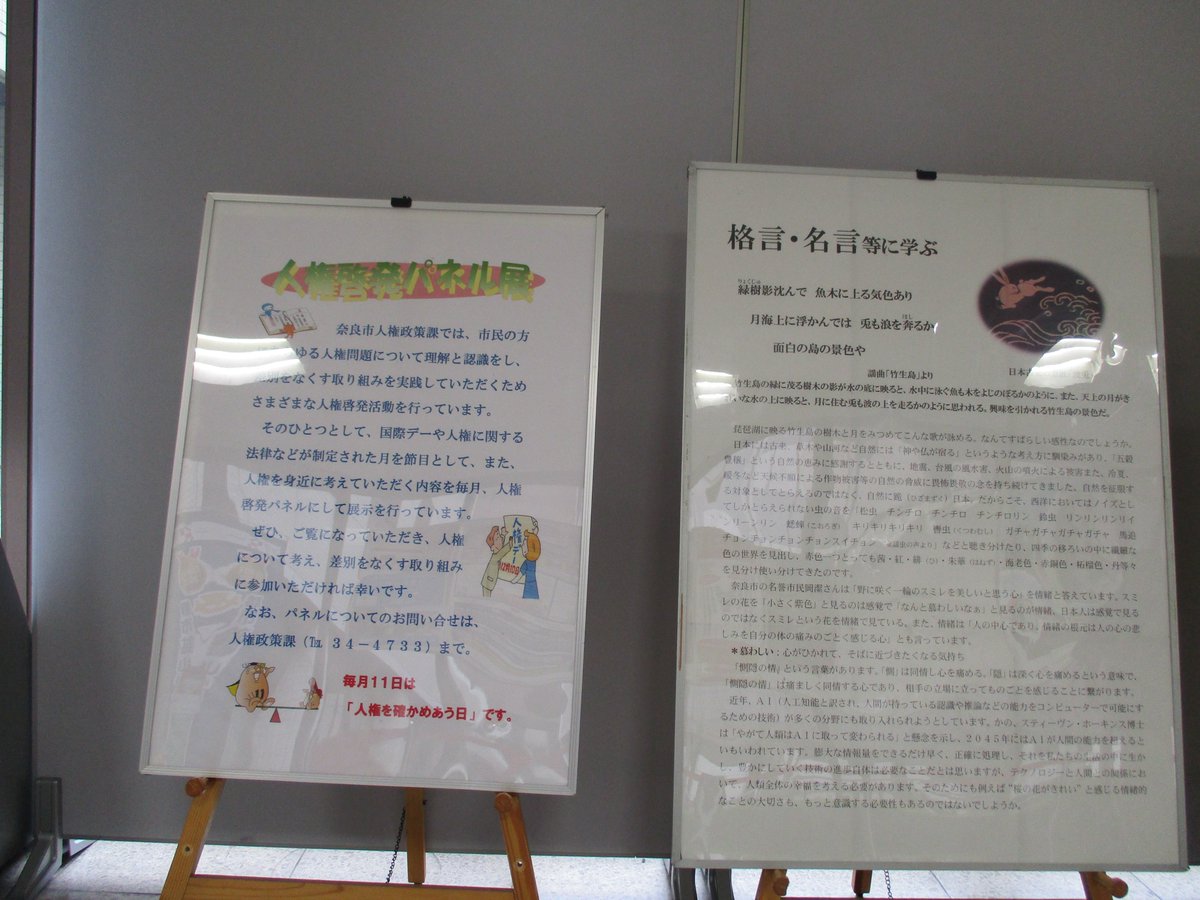 人権啓発パネル展
奈良市人権政策課では、市民の方
ゆる人権問題について理解と認識をし、
別をなくす取り組みを実践していただくため
さまざまな人権啓発活動を行っています。
そのひとつとして、国際デーや人権に関する
法律などが制定された月を節目として、また、
人権を身近に考えていただく内容を毎月、人権
啓発パネルにして展示を行っています。
ぜひ、ご覧になっていただき、人権
について考え、差別をなくす取り組み
に参加いただければ幸いです。
なお、パネルについてのお問い合せは、
人権政策課(℡ 34-4733)まで。
人権デー
12月10日
11
毎月11日は
「人権を確かめあう日」です。
格言・名言等に学ぶ
緑樹影沈んで 魚木に上る気色あり
月海上に浮かんでは 兎も浪を奔るか
面白の島の景色や
謡曲「竹生島」より
日本
竹生島の緑に茂る樹木の影が水の底に映ると、水中に泳ぐ魚も木をよじのぼるかのように、また、天上の月がき
いな水の上に映ると、月に住む兎も波の上を走るかのように思われる、興味を引かれる竹生島の景色だ。
琵琶湖に映る竹生島の樹木と月をみつめてこんな歌が詠める。なんてすばらしい感性なのでしょうか。
日本には古来、草木や山河など自然には「神や仏が宿る」というような考え方に馴染みがあり、「五穀
豊穣」という自然の恵みに感謝するとともに、地震、台風の風水害、火山の噴火による被害また、冷夏、
暖冬など天候不順による作物被害等の自然の脅威に畏怖畏敬の念を持ち続けてきました。自然を征服す
る対象としてとらえるのではなく、自然に跪(ひざまずく)日本。だからこそ、西洋においてはノイズとし
てしかとらえられない虫の音を「松虫 チンチロ チンチロ チンチロリン 鈴虫 リンリンリンリイ
ンリーンリン 蟋蟀(こおろぎ) キリキリキリキリ 轡虫(くつわむし) ガチャガチャガチャガチャ 馬追
チョンチョンチョンチョンスイチョン 虫の声より」などと聴き分けたり、四季の移ろいの中に繊細な
色の世界を見出し、赤色一つとっても茜・紅・緋(ひ)・朱華(はねず)・海老色・赤銅色・柘榴色・丹等々
を見分け使い分けてきたのです。
奈良市の名誉市民岡潔さんは「野に咲く一輪のスミレを美しいと思う心」を情緒と答えています。スミ
レの花を「小さく紫色」と見るのは感覚で「なんと慕わしいなぁ」と見るのが情緒、日本人は感覚で見る
のではなくスミレという花を情緒で見ている。また、情緒は「人の中心であり」情緒の根元は人の心の悲
しみを自分の体の痛みのごとく感じる心」とも言っています。
*慕わしい:心がひかれて、そばに近づきたくなる気持ち
「惻隠の情」という言葉があります。「惻」は同情し心を痛める。「隠」は深く心を痛めるという意味で、
「惻隠の情」は痛ましく同情する心であり、相手の立場に立ってものごとを感じることに繋がります。
近年、AI(人工知能と訳され、人間が持っている認識や推論などの能力をコンピューターで可能にす
るための技術)が多くの分野にも取り入れられようとしています。かの、スティーヴン・ホーキンス博士
は「やがて人類はAIに取って変わられる」と懸念を示し、2045年にはAIが人間の能力を超えると
いもいわれています。膨大な情報量をできるだけ早く、正確に処理し、それを私たちの生活の中に生か
し、豊かにしていく技術の進歩自体は必要なことだとは思いますが、テクノロジーと人間との関係にお
いて、人類全体の幸福を考える必要があります。そのためにも例えば“桜の花がきれい”と感じる情緒的
なことの大切さも、もっと意識する必要性もあるのではないでしょうか。